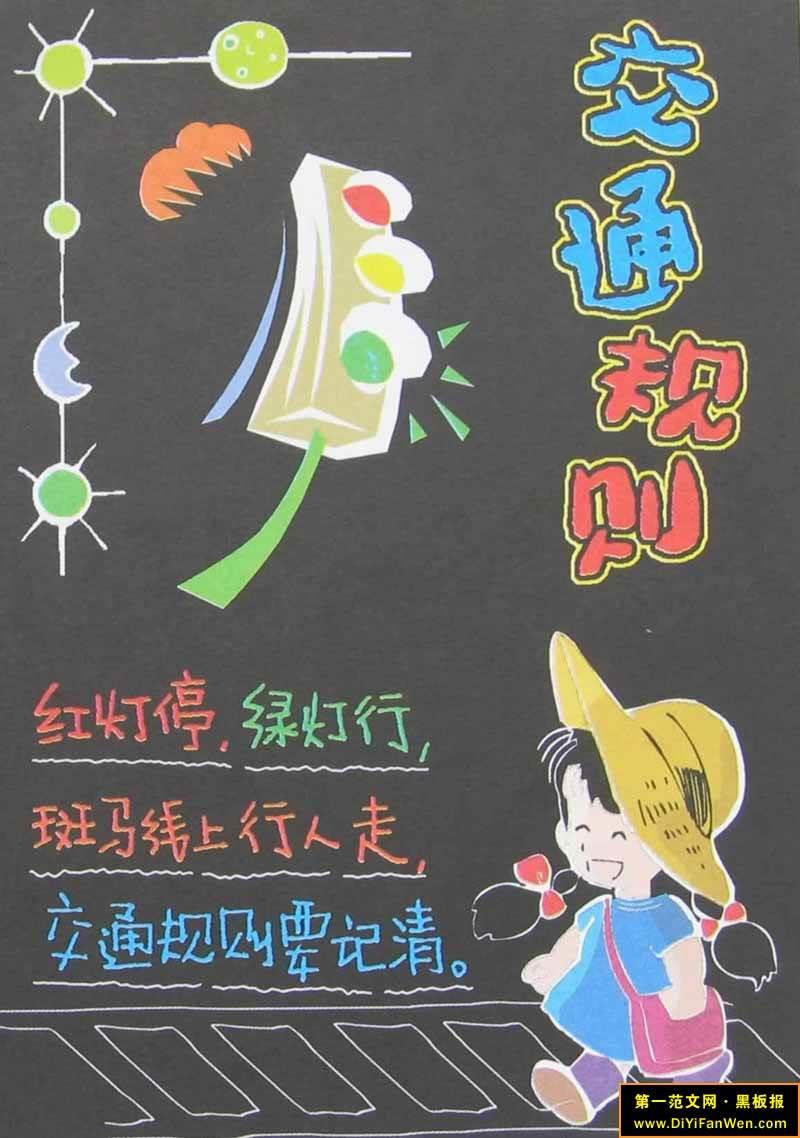 交通规则
红灯停,绿灯行,
斑马线上行人走,
交通规则要记清。
第一范文网·黑板报
www.DiYiFanWen.com